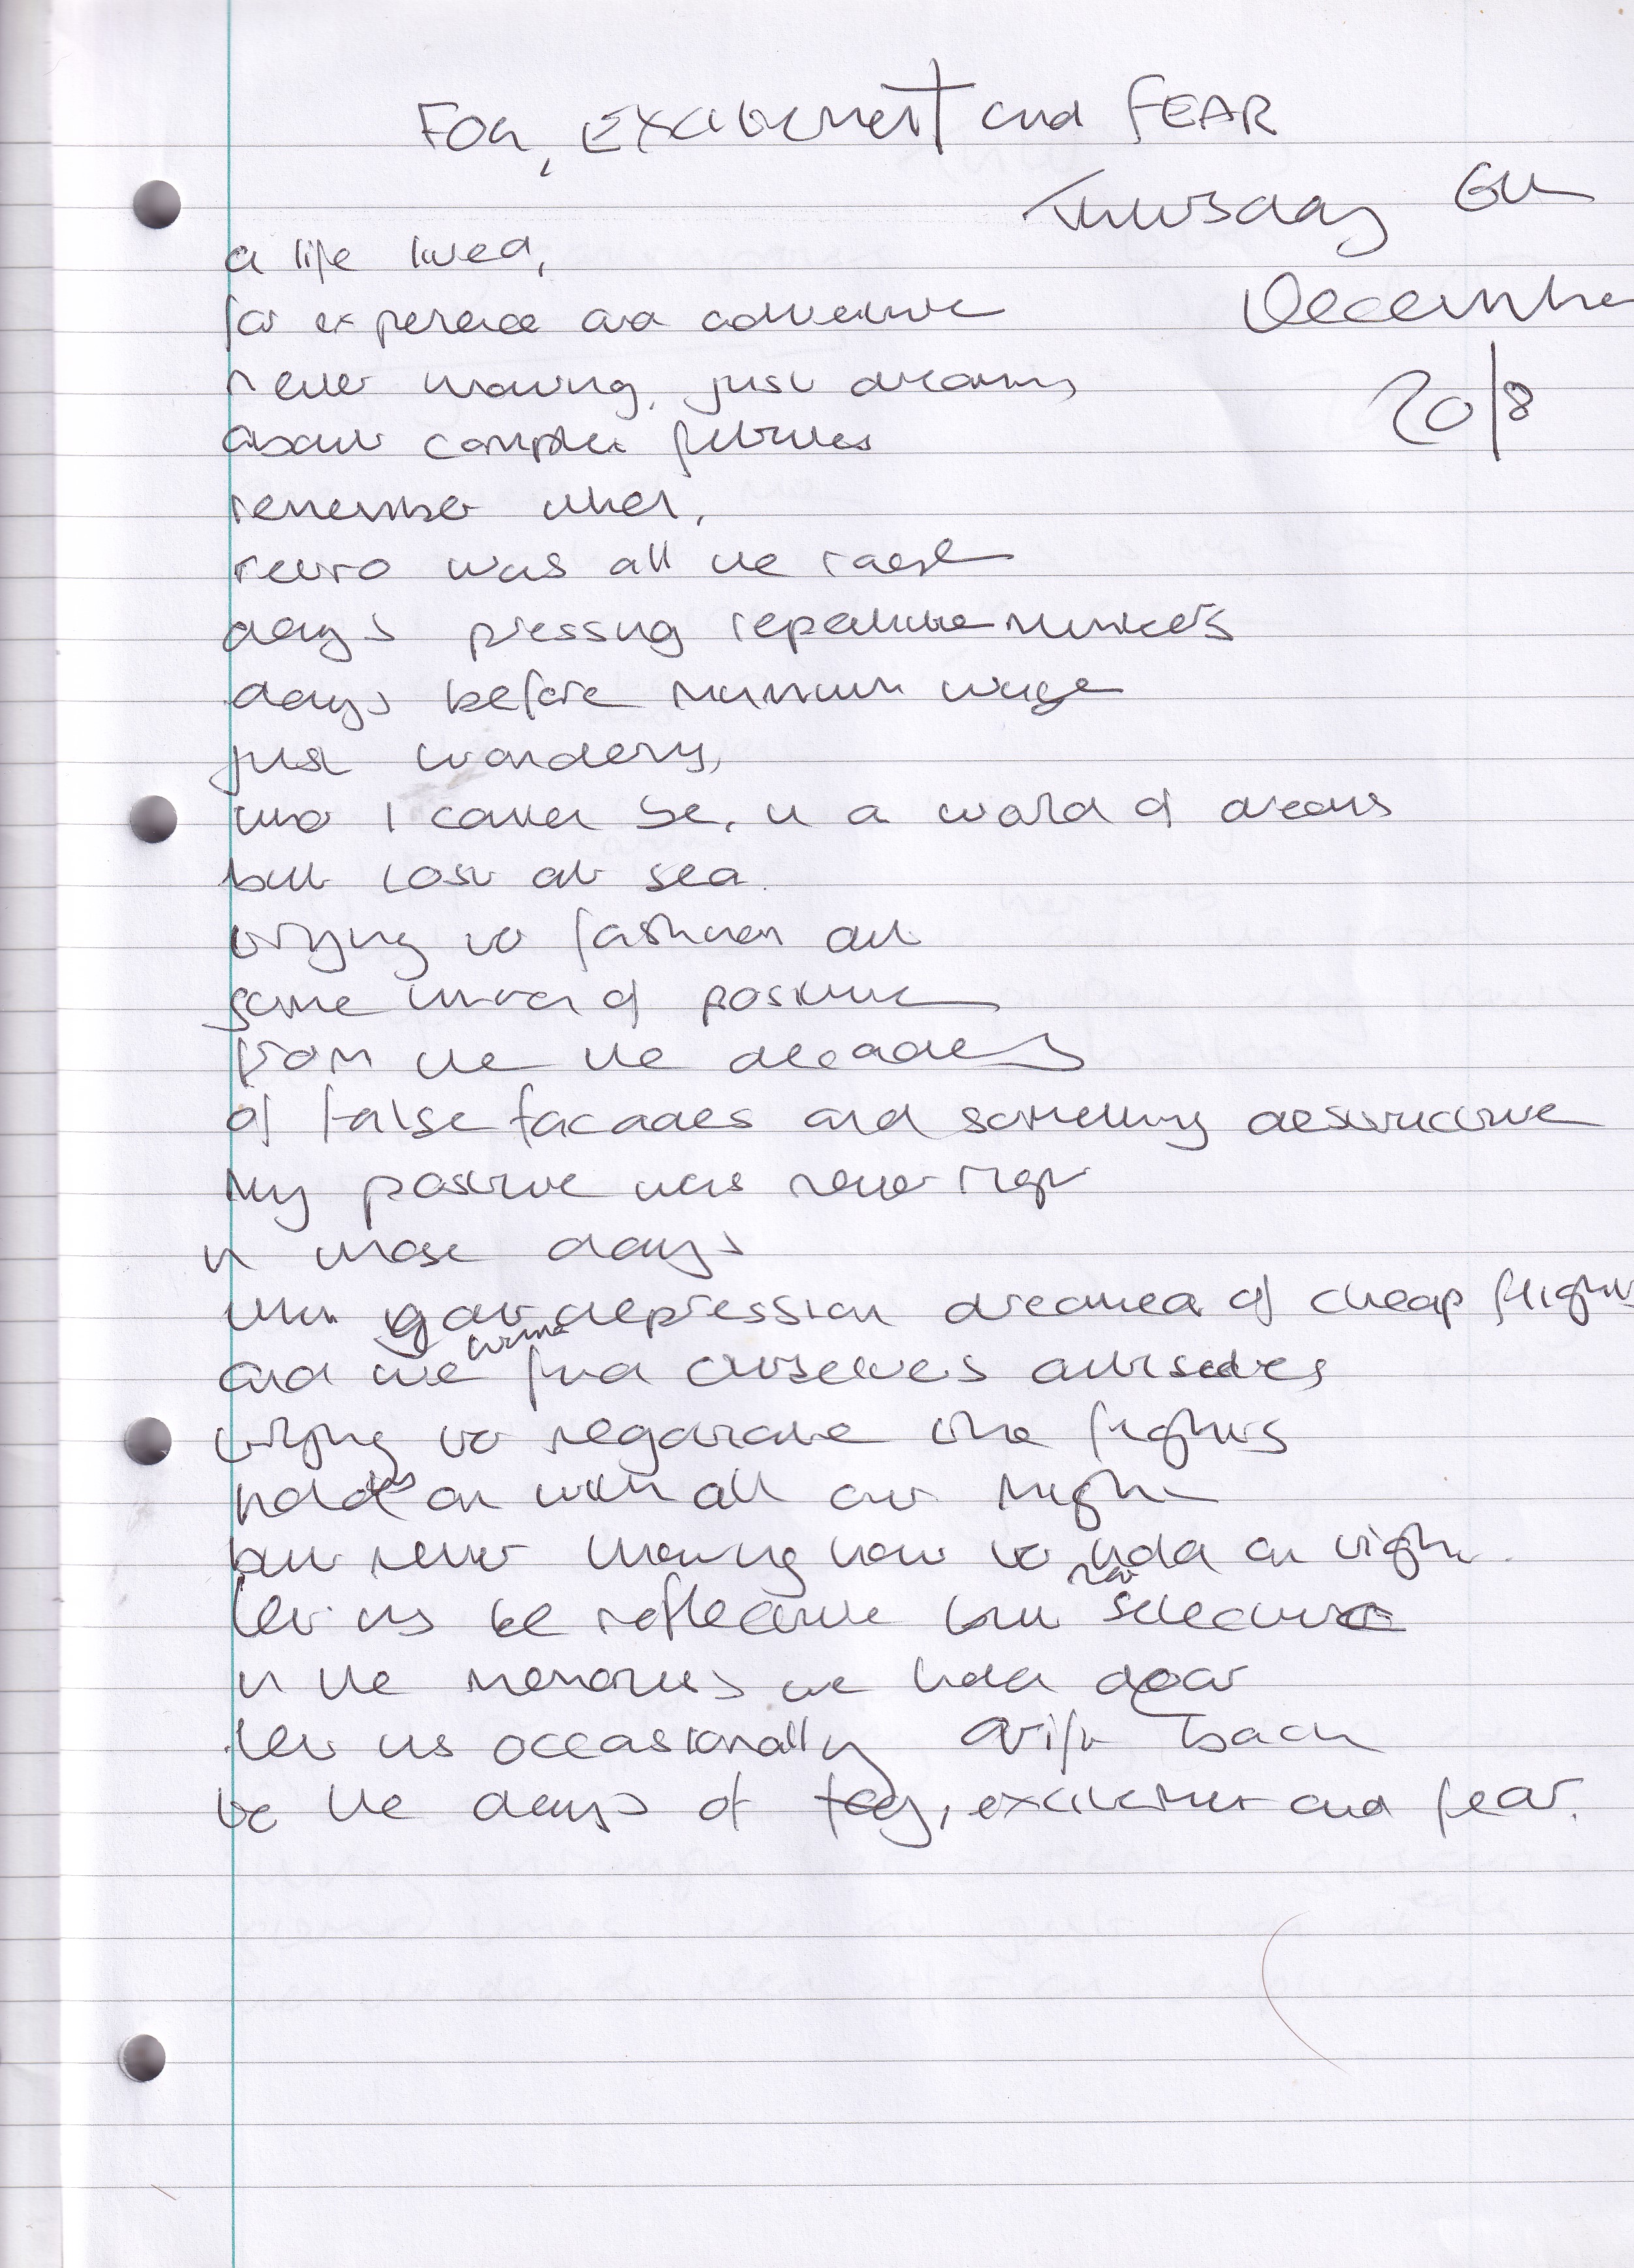 FOG, EXCITEMENT and FEAR
Thursday 6th
December
2018
a life lived,
for experience and adventure
never knowing, just dreaming
about complex futures
remember when,
retro was all the rage
days pressing repetitive numbers
days before minimum wage
just wondering,
who I could be, in a world of dreams
but lost at sea.
trying to fashion out
some kind of posture
from the the decades
of false facades and something destructive
My posture was never right
in those days
when depression dreamed of cheap flights
and we find ourselves ourselves
trying to the fights
hold on with all our might
but never knowing how to hold on tight.
let us be reflective but not selective
in the memories we hold dear
let us occasionally drift back
to the days of fog, excitement and fear.